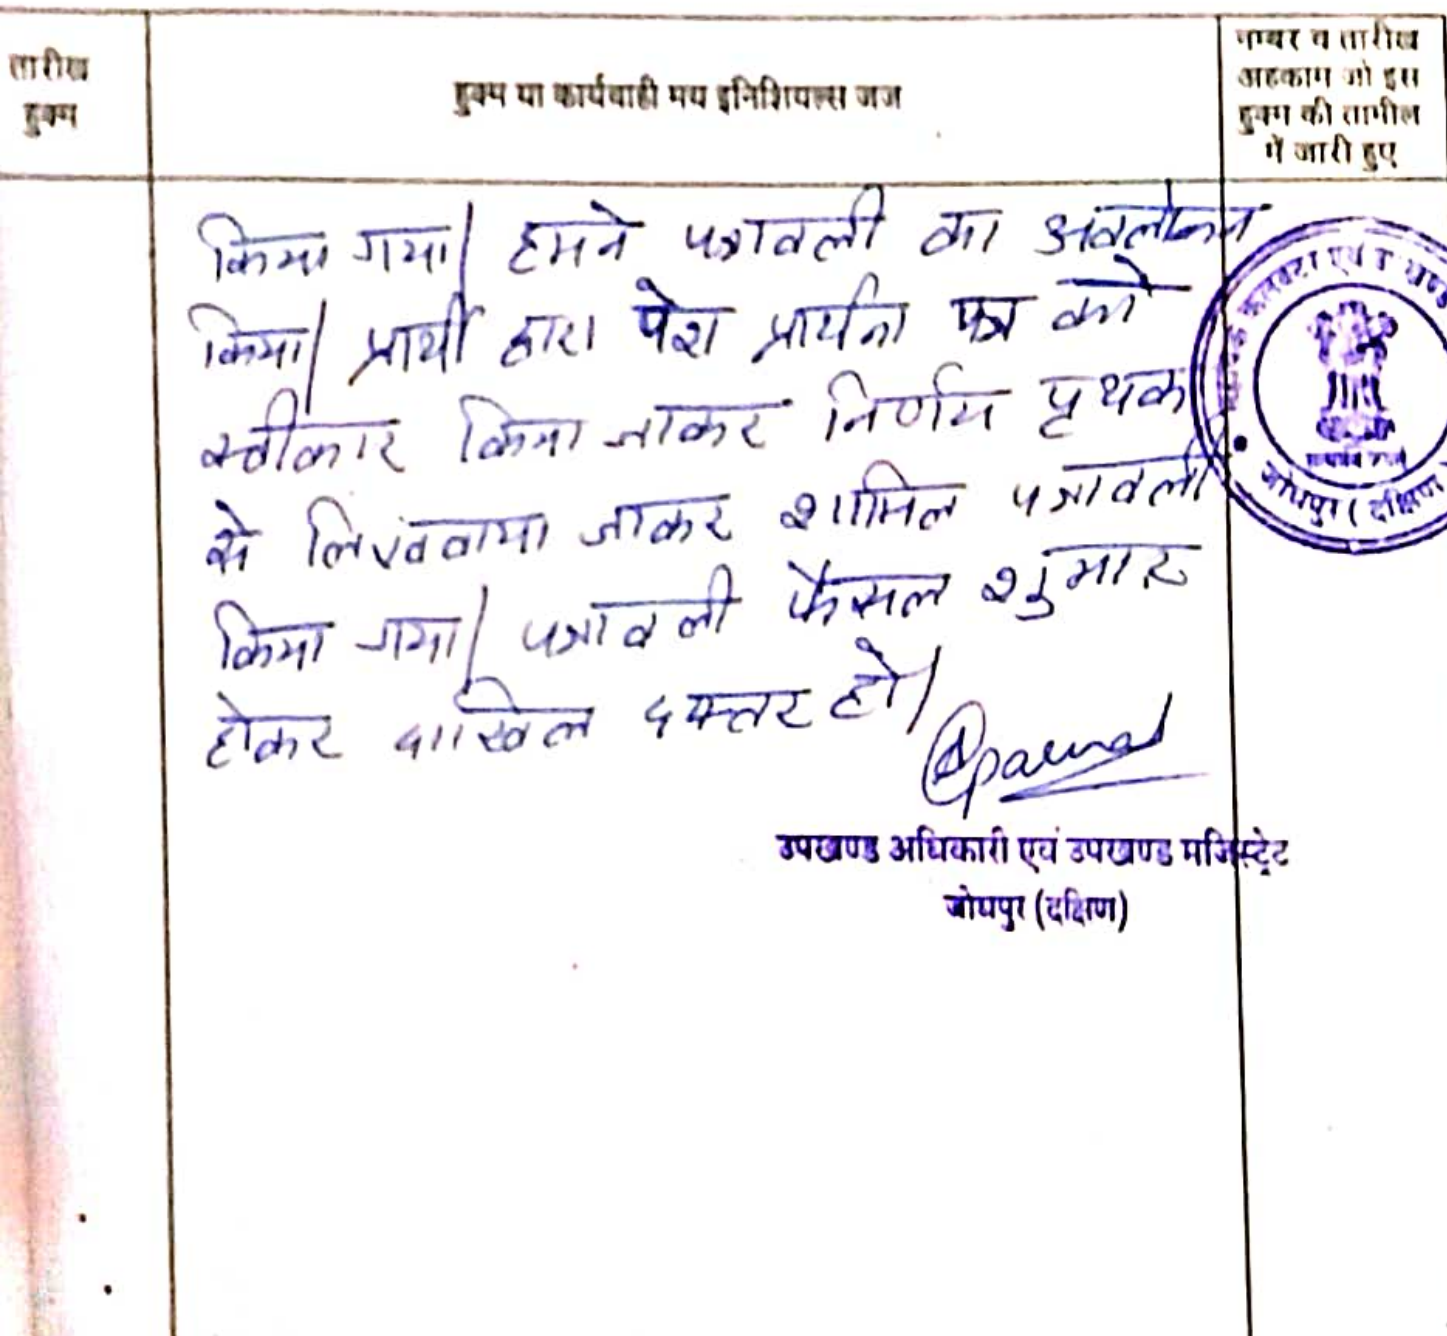 तारीख
हुक्म
हुक्म या कार्यवाही मय इनिशियल्स जज
नम्बर व तारीख
अहकाम जो इस
हुक्म की तामील
में जारी हुए
किया गया। हमने पत्रावली का अवलोकन
किया। प्रार्थी द्वारा पेश प्रार्थना पत्र को
स्वीकार किया जाकर निर्णय पृथक
से लिखवाया जाकर शामिल पत्रावली
किया गया। पत्रावली फैसल शुमार
होकर दाखिल दफ्तर हो।
उपखण्ड अधिकारी एवं उपखण्ड मजिस्ट्रेट
जोधपुर (दक्षिण)
कलक्टर एवं
सत्यमेव जयते
जोधपुर (दक्षिण